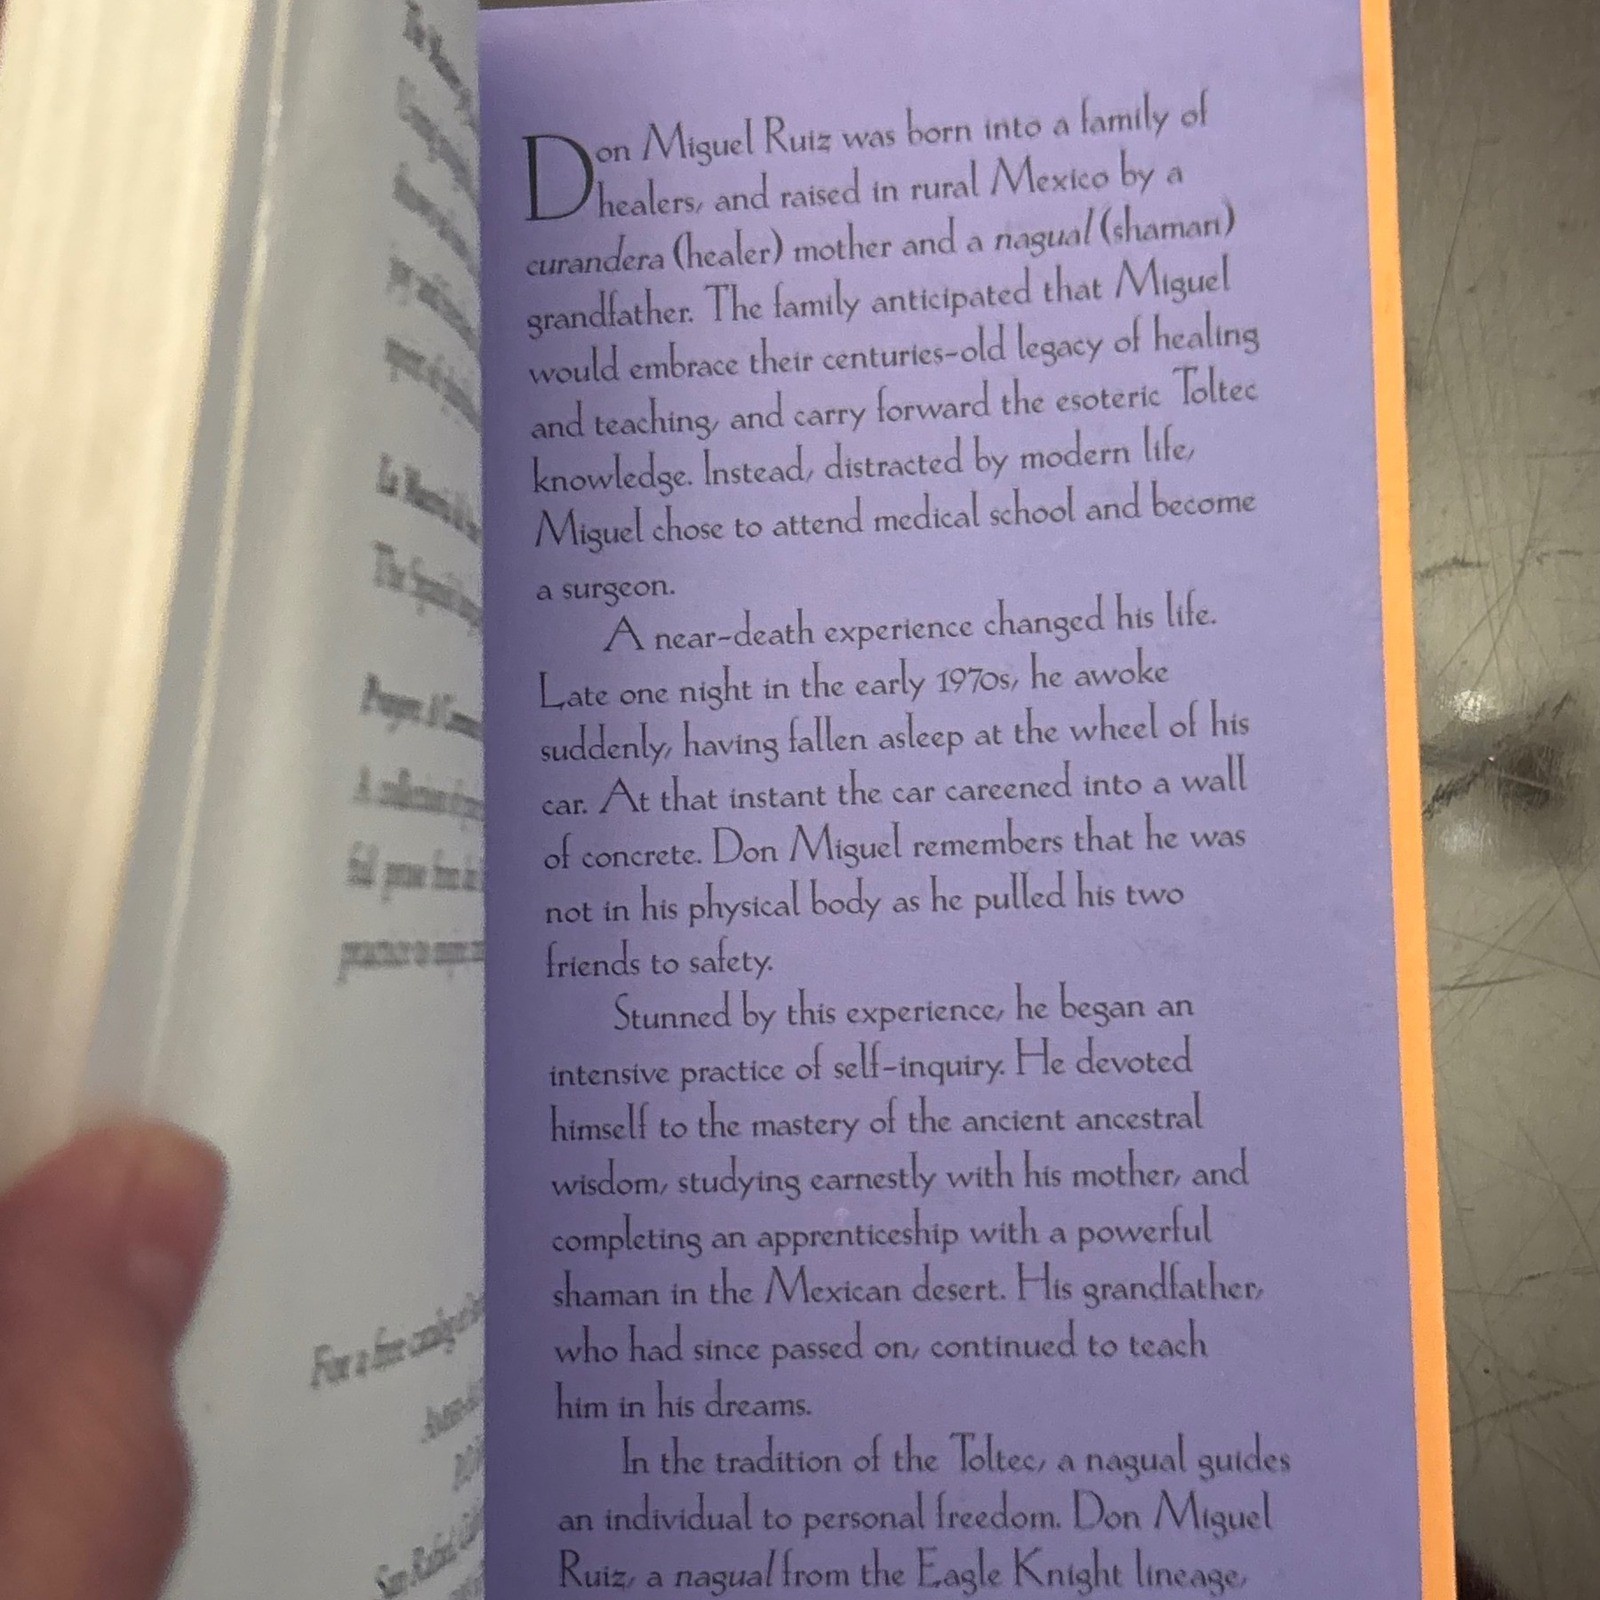 Don Miguel Ruiz was born into a family of
healers, and raised in rural Mexico by a
curandera (healer) mother and a nagual (shaman)
grandfather. The family anticipated that Miguel
would embrace their centuries-old legacy of healing
and teaching, and carry forward the esoteric Toltec
knowledge. Instead, distracted by modern life,
Miguel chose to attend medical school and become
a surgeon.
A near-death experience changed his life.
Late one night in the early 1970s, he awoke
suddenly, having fallen asleep at the wheel of his
car. At that instant the car careened into a wall
of concrete. Don Miguel remembers that he was
not in his physical body as he pulled his two
friends to safety.
Stunned by this experience, he began an
intensive practice of self-inquiry. He devoted
himself to the mastery of the ancient ancestral
wisdom, studying earnestly with his mother, and
completing an apprenticeship with a powerful
shaman in the Mexican desert. His grandfather,
who had since passed on, continued to teach
him in his dreams.
In the tradition of the Toltec, a nagual guides
an individual to personal freedom. Don Miguel
Ruiz, a nagual from the Eagle Knight lineage,